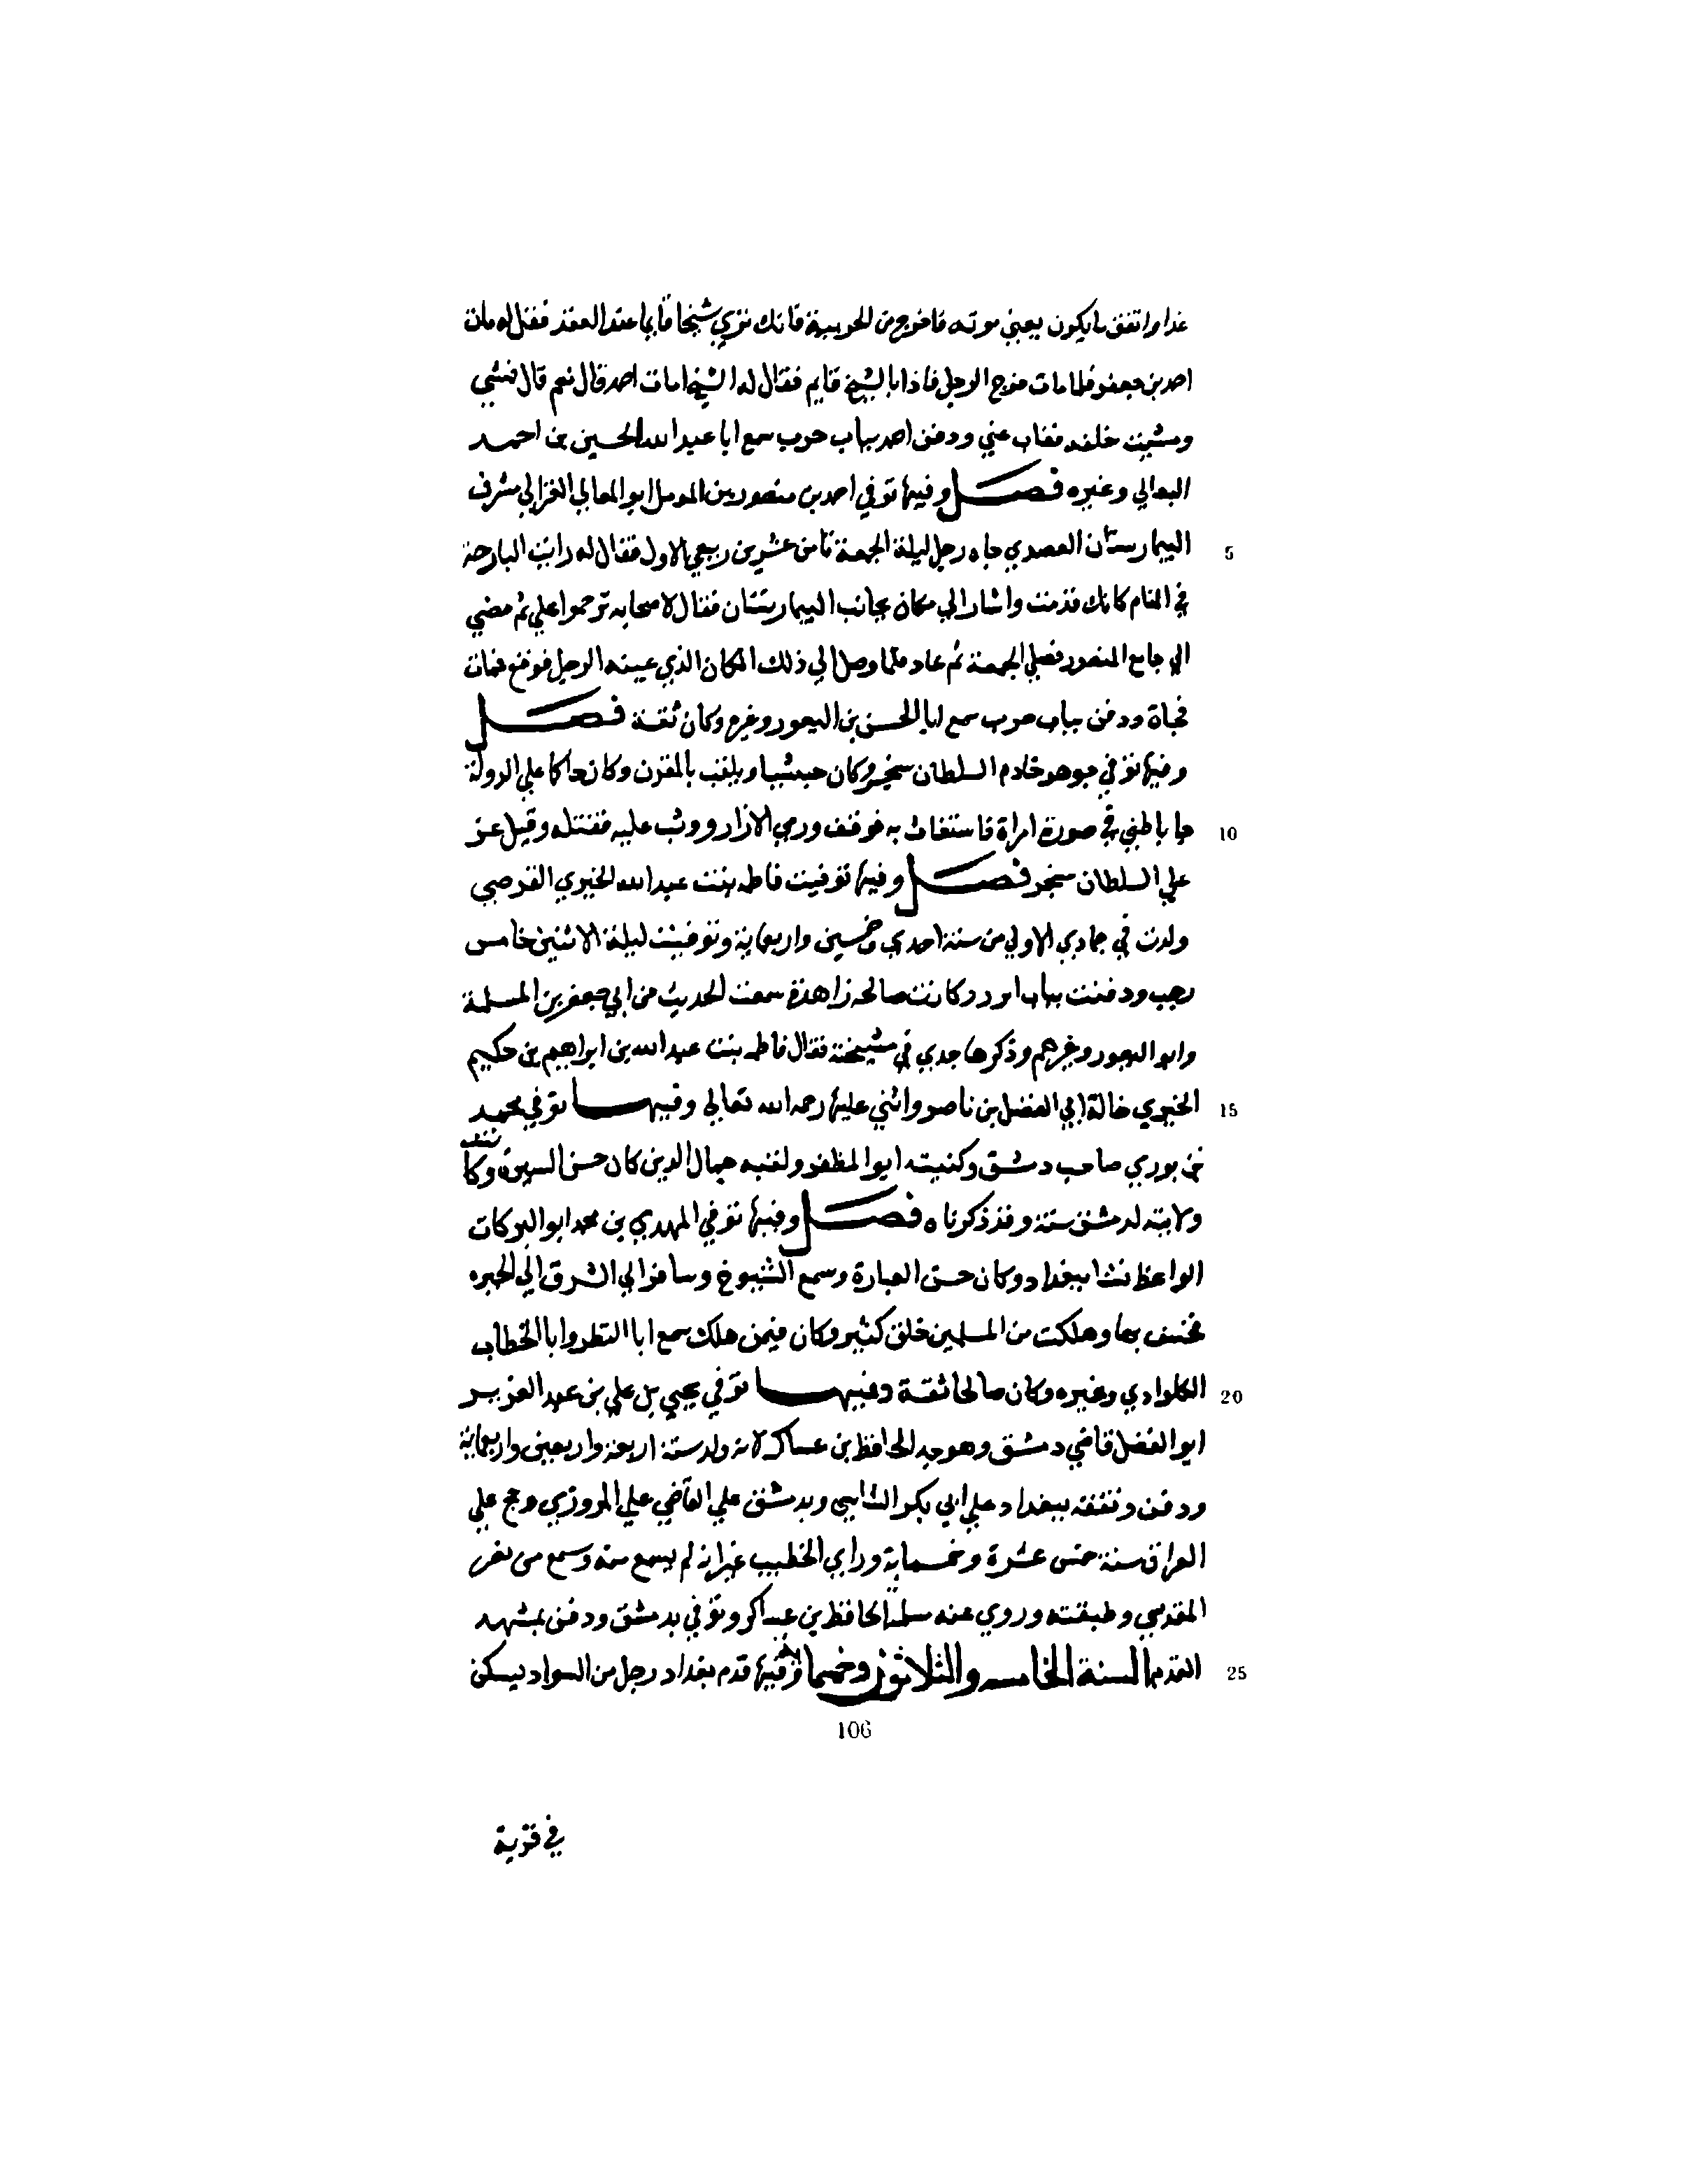 غدا واتفق ما يكون يعني موته فاخرج من الحربية فانك تري شيخا قايما عند العقد فقل له مات
احمد بن جعفر فلما مات خرج الرجل فاذا بالشيخ قايم فقال له الشيخ امات احمد قال نعم قال فمشي
ومشيت خلفه فغاب عني ودفن احمد بباب حرب سمع ابا عبد الله الحسين بن احمد
النعالي وغيره فصل وفيها توفي احمد بن منصور بن المومل ابو المعالي الغزالي مشرف
5 البيمارستان العضدي جاه رجل ليلة الجمعة ثامن عشرين ربيع الاول فقال له رايت البارحة
في المنام كانك قد مت واشار الي مكان بجانب البيمارستان فقال لاصحابه ترحموا علي ثم مضي
الي جامع المنصور فصلي الجمعة ثم عاد فلما وصل الي ذلك المكان الذي عينه الرجل فوقع فمات
فجاة ودفن بباب حرب سمع ابا الحسن بن وغيره وكان ثقة فصل
وفيها توفي جوهر خادم السلطان سنجر وكان حبشيا ويلقب بالمقرب وكان حاكما علي الدولة
10 جا باطني في صورة امراة فاستغاث به فوقف ورمي الازار ووثب عليه فقتله وقيل عز
علي السلطان سنجر فصل وفيها توفيت فاطمه بنت عبد الله الخبري الفرضي
ولدت في جمادي الاولي من سنة احدي وخمسين واربعماية وتوفيت ليلة الاثنين خامس
رجب ودفنت بباب ابرز وكانت صالحه زاهدة سمعت الحديث من ابي جعفر بن المسلمة
وابو وغيرهم وذكرها جدي في مشيخته فقال فاطمه بنت عبد الله بن ابراهيم بن حكيم
15 الخبري خالة ابي الفضل بن ناصر واثني عليها رحمه الله تعالي وفيها توفي محمد
بن بوري صاحب دمشق وكنيته ابو المظفر ولقبه جمال الدين كان حسن السيرة وكانت
ولايته لدمشق سنة وقد ذكرناه فصل وفيها توفي المهدي بن محمد ابو البركات
الواعظ نشا ببغداد وكان حسن العبارة وسمع الشيوخ وسافر الي الشرق الي
فخسف بها وهلكت من المسلمين خلق كثير وكان فيمن هلك سمع ابا وابا الخطاب
20 الكلوادي وغيره وكان صالحا ثقة وفيها توفي يحيي بن علي بن عبد العزيز
ابو الفضل قاضي دمشق وهو جد الحافظ بن عساكر لامه ولد سنة اربعة واربعين واربعماية
ودفن وتفقه ببغداد علي ابي بكر الشاشي وبدمشق علي القاضي علي المروزي وحج علي
العراق سنة خمس عشرة وخمسماية وراي الخطيب غير انه لم يسمع منه وسمع من نصر
المقدسي وطبقته وروي عنه الحافظ بن عساكر وتوفي بدمشق ودفن بمشهد
25 القدم السنة الخامسه والثلاثون وخمسماية وفيها قدم بغداد رجل من السواد يسكن
106
في قرية